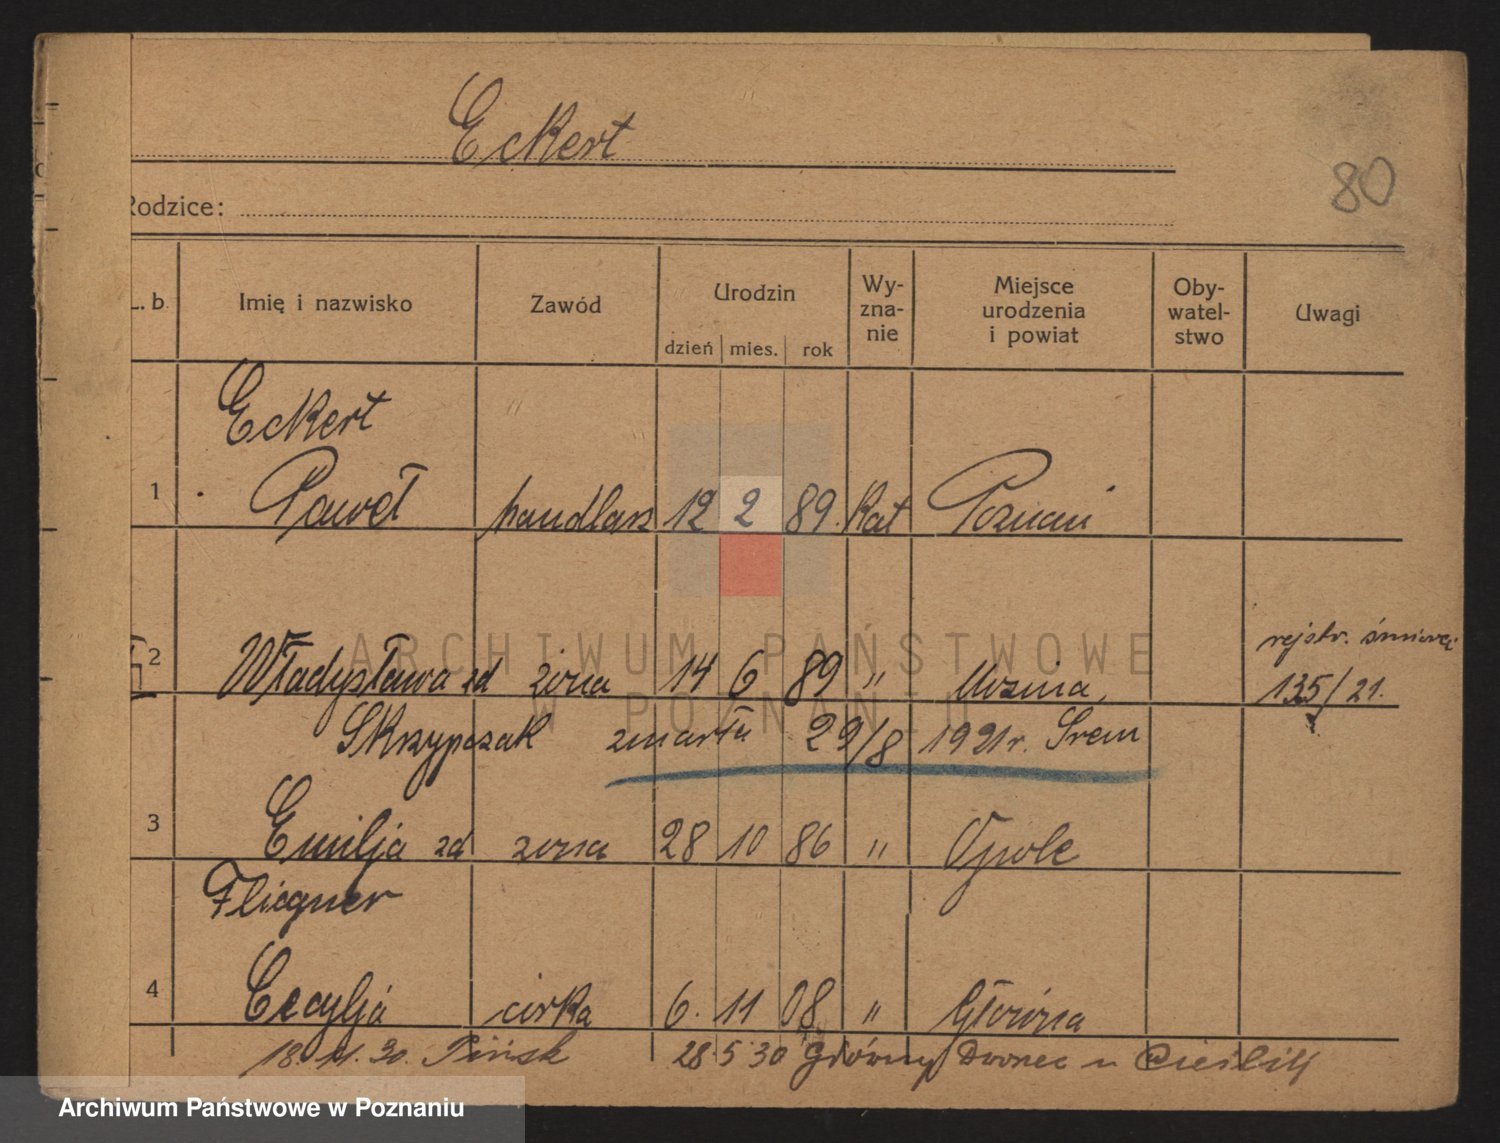 Eckert
80
Rodzice:
L. b. Imię i nazwisko Zawód Urodzin dzień mies. rok Wy-zna-nie Miejsce urodzenia i powiat Oby-watel-stwo Uwagi
Eckert
1 Paweł handlarz 12 2 89. Kat Poznań
rejstr. śmierci
2 Władysława zd żona 14 6 89 " Mosina, 135/21.
Skrzypczak zmarła 29/8 1921 r. Śrem
3 Emilja zd żona 28 10 86 " Opole
Fliegner
4 Cecylja córka 6. 11 08 " Główna
18.11.30. Pińsk 28.5.30 Główny Dworzec u
ARCHIWUM PAŃSTWOWE
W POZNANIU
Archiwum Państwowe w Poznaniu